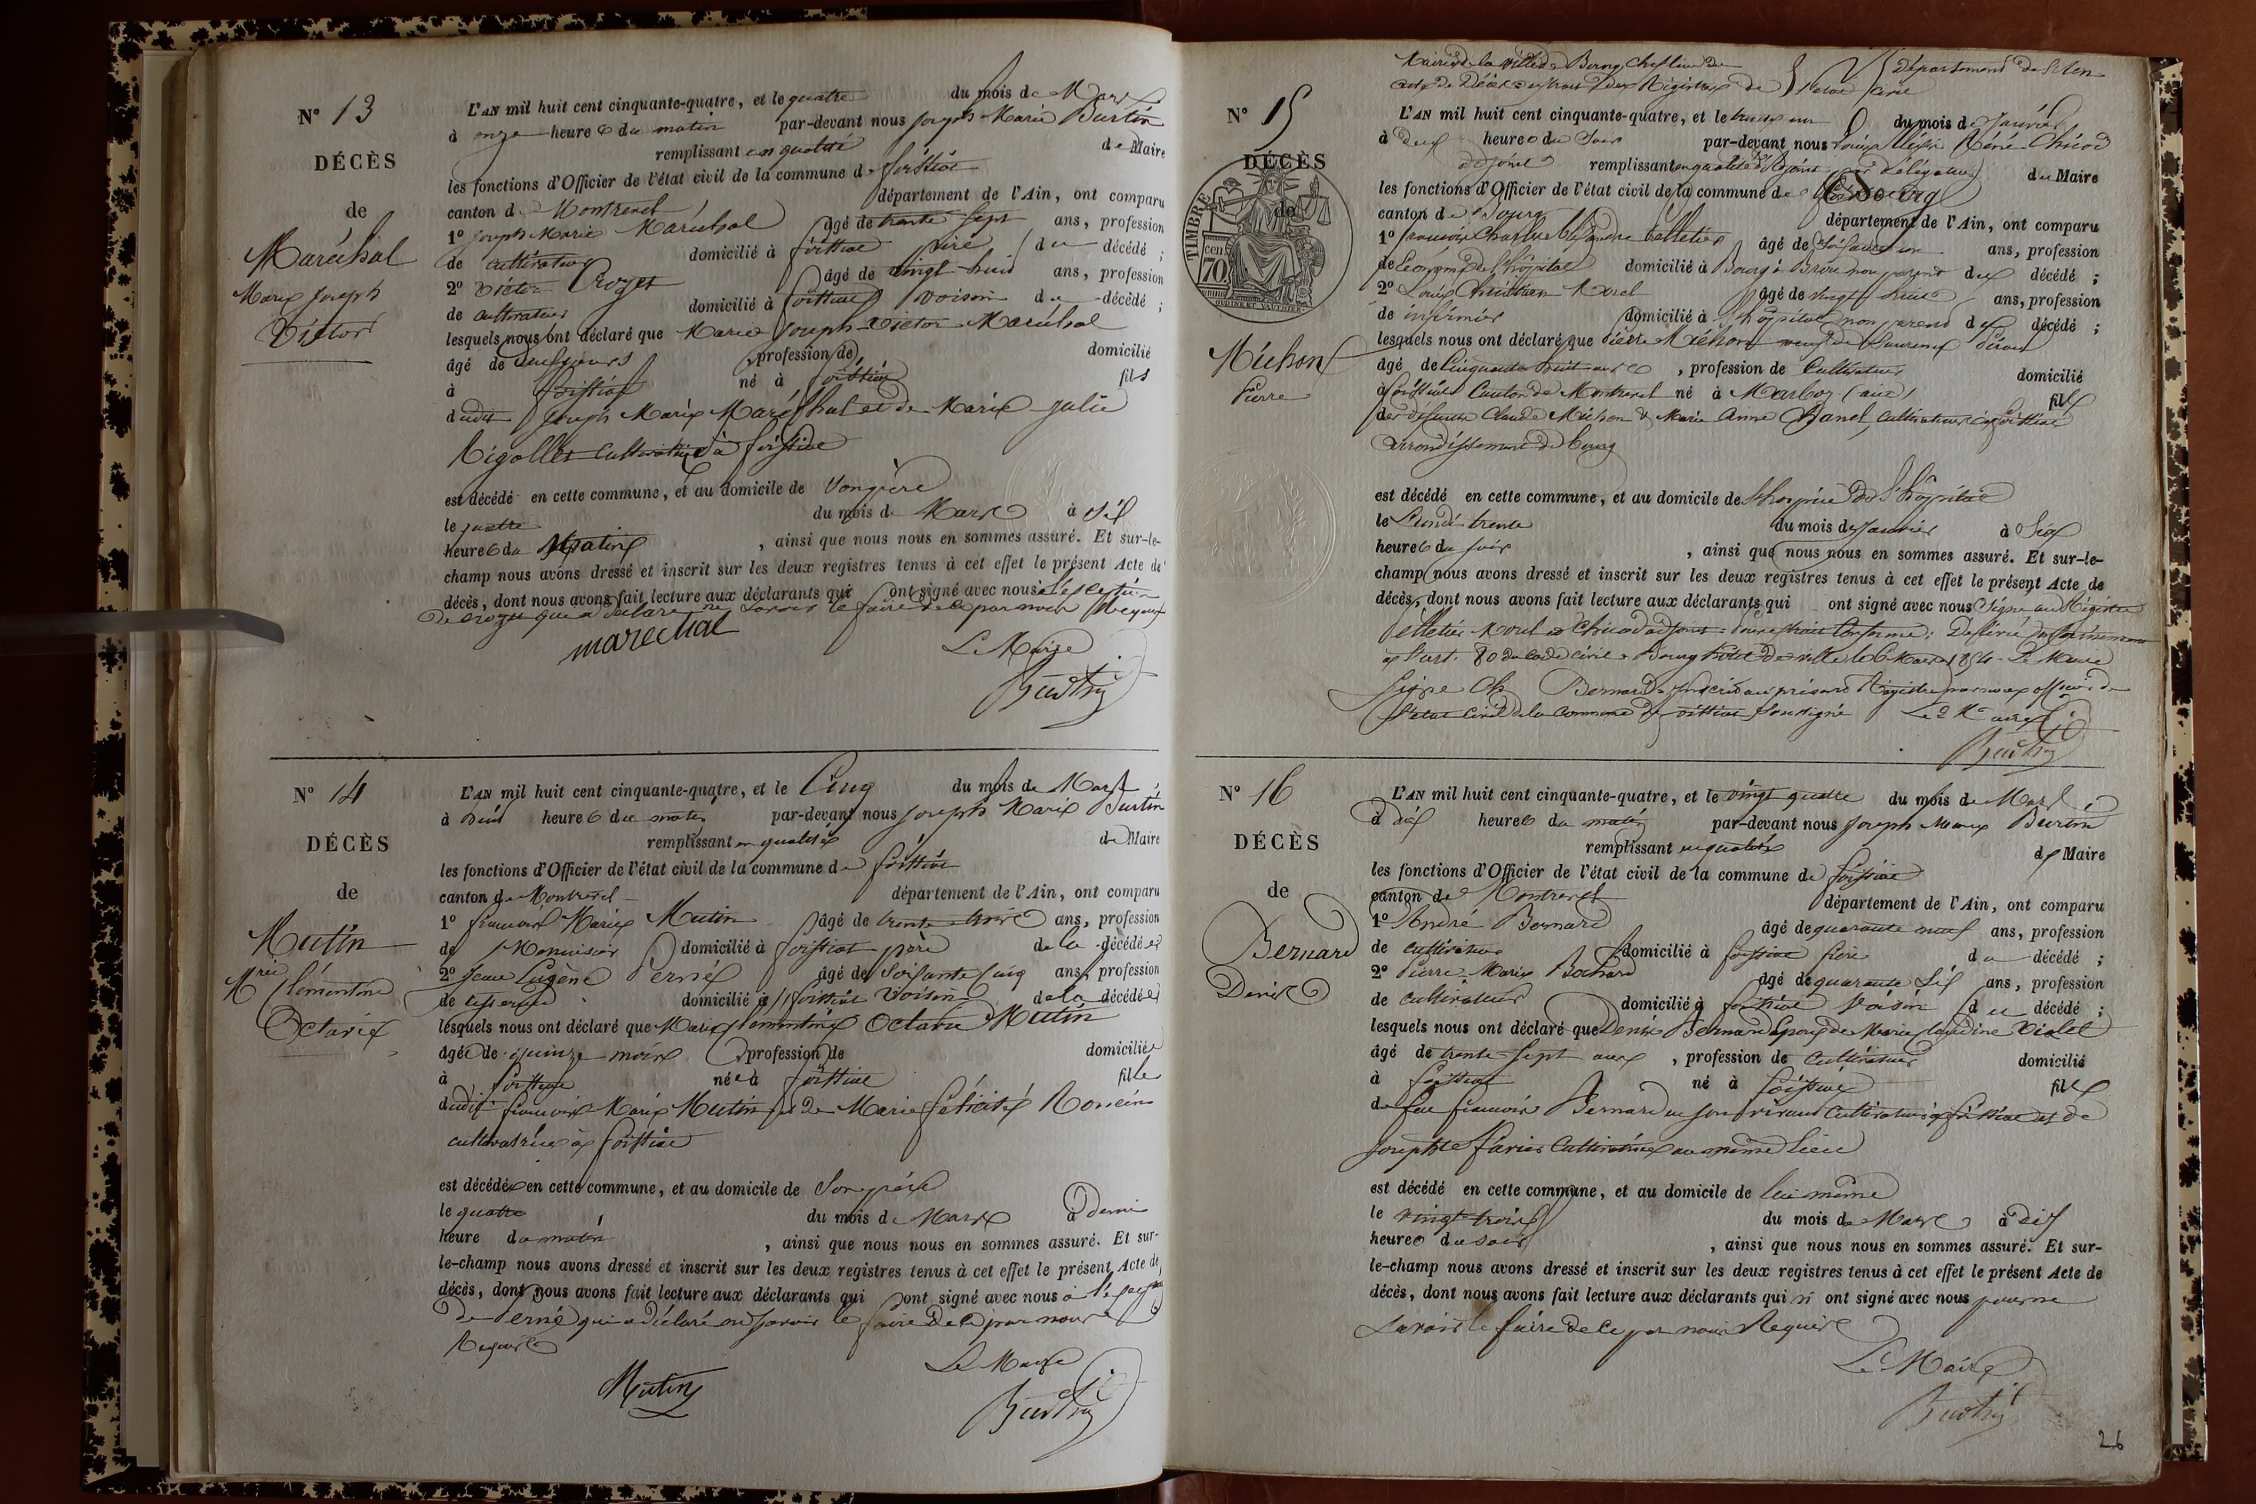 N° 13
DÉCÈS
de
Maréchal
Marie Joseph
Victor
L'AN mil huit cent cinquante-quatre, et le quatre du mois de Mars
à onze heures du matin par-devant nous Joseph Marie Burtin
remplissant en qualité de Maire
les fonctions d'Officier de l'état civil de la commune de foissiat
canton de Montrevel département de l'Ain, ont comparu
1° Joseph Marie Maréchal âgé de trente sept ans, profession
de cultivateur domicilié à foissiat père du décédé ;
2° Victor Croyet âgé de vingt huit ans, profession
de cultivateur domicilié à foissiat voisin du décédé ;
lesquels nous ont déclaré que Marie Joseph Victor Maréchal
âgé de jours profession de domicilié
à foissiat né à foissiat fils
dudit Joseph Marie Maréchal et de Marie Julie
Rigollet cultivatrice à foissiat
est décédé en cette commune, et au domicile de son père
le quatre du mois de Mars à six
heures du Matin , ainsi que nous nous en sommes assuré. Et sur-le-
champ nous avons dressé et inscrit sur les deux registres tenus à cet effet le présent Acte de
décès, dont nous avons fait lecture aux déclarants qui ont signé avec nous à l'exception
de Croyet qui a déclaré ne savoir le faire de ce par nous Requis
marechal
Le Maire
Burtin
N° 14
DÉCÈS
de
Mutin
Mrie Clémentine
Octavie
L'AN mil huit cent cinquante-quatre, et le Cinq du mois de Mars
à heures du matin par-devant nous Joseph Marie Burtin
remplissant en qualité de Maire
les fonctions d'Officier de l'état civil de la commune de foissiat
canton de Montrevel département de l'Ain, ont comparu
1° françois Marie Mutin âgé de trente trois ans, profession
de Menuisier domicilié à foissiat père de la décédée
2° Jean Eugène Perné âgé de soixante cinq ans, profession
de tisserand domicilié à foissiat voisin de la décédée
lesquels nous ont déclaré que Marie Clémentine Octavie Mutin
âgée de quinze mois profession de domiciliée
à foissiat née à foissiat fille
dudit françois Marie Mutin et de Marie félicité
cultivatrice à foissiat
est décédée en cette commune, et au domicile de son père
le quatre du mois de Mars à demi
heure du matin , ainsi que nous nous en sommes assuré. Et sur-
le-champ nous avons dressé et inscrit sur les deux registres tenus à cet effet le présent Acte de
décès, dont nous avons fait lecture aux déclarants qui ont signé avec nous à l'exception
de Perné qui a déclaré ne savoir le faire de ce par nous
Requis
Mutin
Le Maire
Burtin
Mairie de la ville de Bourg Chef lieu du département de l'Ain
acte de Décès extrait des Registres de l'état civil
N° 15
DÉCÈS
de
TIMBRE
70 cen
Michon
Pierre
L'AN mil huit cent cinquante-quatre, et le trente un du mois de Janvier
à Deux heures du Soir par-devant nous Chicod
remplissant en qualité d'adjoint par délégation du Maire
les fonctions d'Officier de l'état civil de la commune de Bourg
canton de Bourg département de l'Ain, ont comparu
1° françois Charles Alexandre Pelletier âgé de soixante un ans, profession
de l'économe de l'hôpital domicilié à Bourg non parent du décédé ;
2° Louis Morel âgé de vingt huit ans, profession
de infirmier domicilié à l'hôpital non parent du décédé ;
lesquels nous ont déclaré que Pierre Michon veuf de
âgé de Cinquante huit ans , profession de Cultivateur domicilié
à foissiat Canton de Montrevel né à Marboz (ain) fils
des défunts Claude Michon & Marie Anne Chanel cultivateurs à foissiat
arrondissement de bourg
est décédé en cette commune, et au domicile de l'hospice de l'hôpital
le Lundi trente du mois de Janvier à Six
heures du soir , ainsi que nous nous en sommes assuré. Et sur-le-
champ nous avons dressé et inscrit sur les deux registres tenus à cet effet le présent Acte de
décès, dont nous avons fait lecture aux déclarants qui ont signé avec nous Signé au Registre
Pelletier Morel et Chicod adjoint pour extrait Conforme: Délivré conformément
à l'art. 80 du Code civil Bourg hôtel de ville le 6 Mars 1854. Le Maire
Signé Ch Bernard Inscrit au présent Registre par nous officier de
l'état civil de la commune de foissiat soussigné Le Maire
Burtin
N° 16
DÉCÈS
de
Bernard
Denis
L'AN mil huit cent cinquante-quatre, et le vingt quatre du mois de Mars
à dix heures du matin par-devant nous Joseph Marie Burtin
remplissant en qualité de Maire
les fonctions d'Officier de l'état civil de la commune de foissiat
canton de Montrevel département de l'Ain, ont comparu
1° André Bernard âgé de quarante neuf ans, profession
de cultivateur domicilié à foissiat frère du décédé ;
2° Pierre Marie Bochard âgé de quarante six ans, profession
de cultivateur domicilié à foissiat voisin du décédé ;
lesquels nous ont déclaré que Denis Bernard époux de Marie Claudine Violet
âgé de trente sept ans , profession de cultivateur domicilié
à foissiat né à foissiat fils
de feu françois Bernard en son vivant cultivateur à foissiat et de
Josephte favier cultivatrice au même lieu
est décédé en cette commune, et au domicile de lui même
le vingt trois du mois de Mars à dix
heures du soir , ainsi que nous nous en sommes assuré. Et sur-
le-champ nous avons dressé et inscrit sur les deux registres tenus à cet effet le présent Acte de
décès, dont nous avons fait lecture aux déclarants qui n'ont signé avec nous pour ne
savoir le faire de ce par nous Requis
Le Maire
Burtin
26